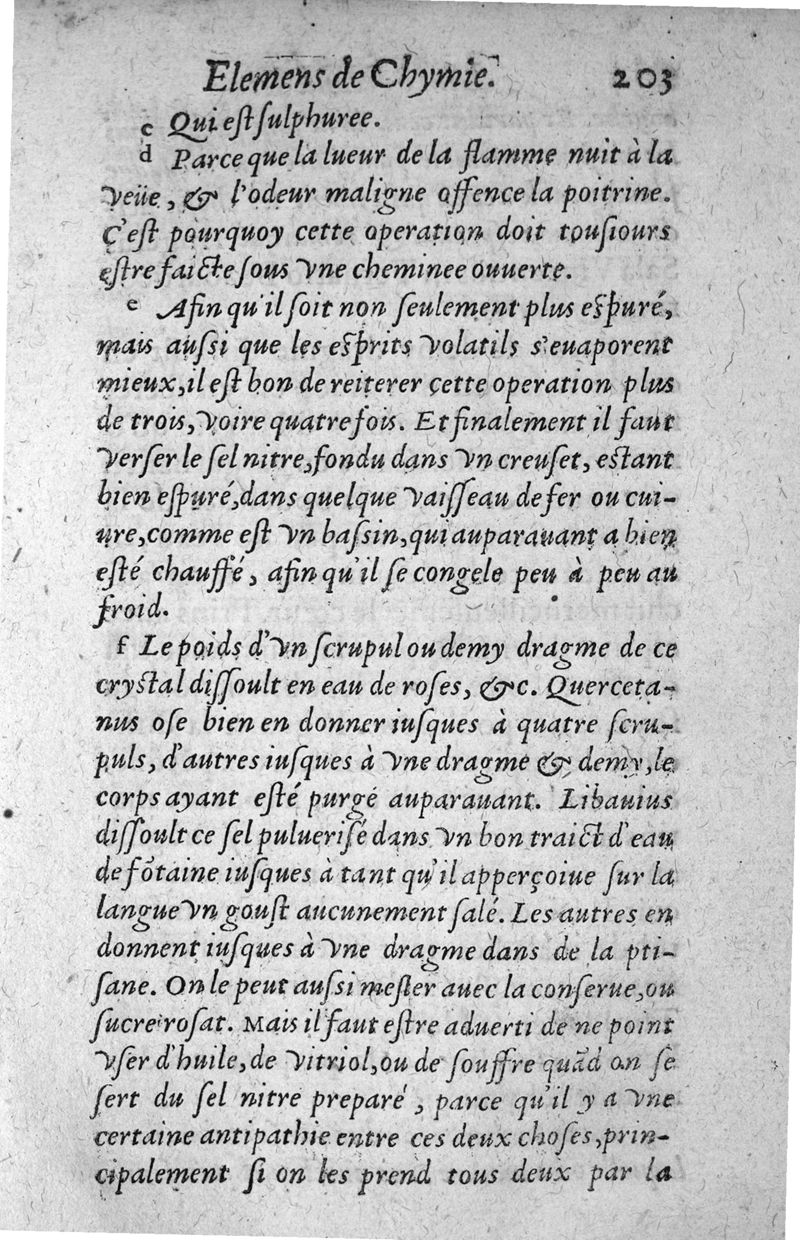 Elemens de Chymie. 203
c Qui est sulphuree.
d Parce que la lueur de la flamme nuit à la
veüe, & l'odeur maligne offence la poitrine.
C'est pourquoy cette operation doit tousiours
estre faicte sous vne cheminee ouuerte.
e Afin qu'il soit non seulement plus espuré,
mais aussi que les esprits volatils s'euaporent
mieux, il est bon de reiterer cette operation plus
de trois, voire quatre fois. Et finalement il faut
verser le sel nitre, fondu dans vn creuset, estant
bien espuré, dans quelque vaisseau de fer ou cui-
ure, comme est vn bassin, qui auparauant a bien
esté chauffé, afin qu'il se congele peu à peu au
froid.
f Le poids d'vn scrupul ou demy dragme de ce
crystal dissoult en eau de roses, &c. Querceta-
nus ose bien en donner iusques à quatre scru-
puls, d'autres iusques à vne dragme & demy, le
corps ayant esté purgé auparauant. Libauius
dissoult ce sel puluerisé dans vn bon traict d'eau
de fõtaine iusques à tant qu'il apperçoiue sur la
langue vn goust aucunement salé. Les autres en
donnent iusques à vne dragme dans de la pti-
sane. On le peut aussi mesler auec la conserue, ou
sucre rosat. Mais il faut estre aduerti de ne point
vser d'huile, de vitriol, ou de souffre quãd on se
sert du sel nitre preparé, parce qu'il y a vne
certaine antipathie entre ces deux choses, prin-
cipalement si on les prend tous deux par la